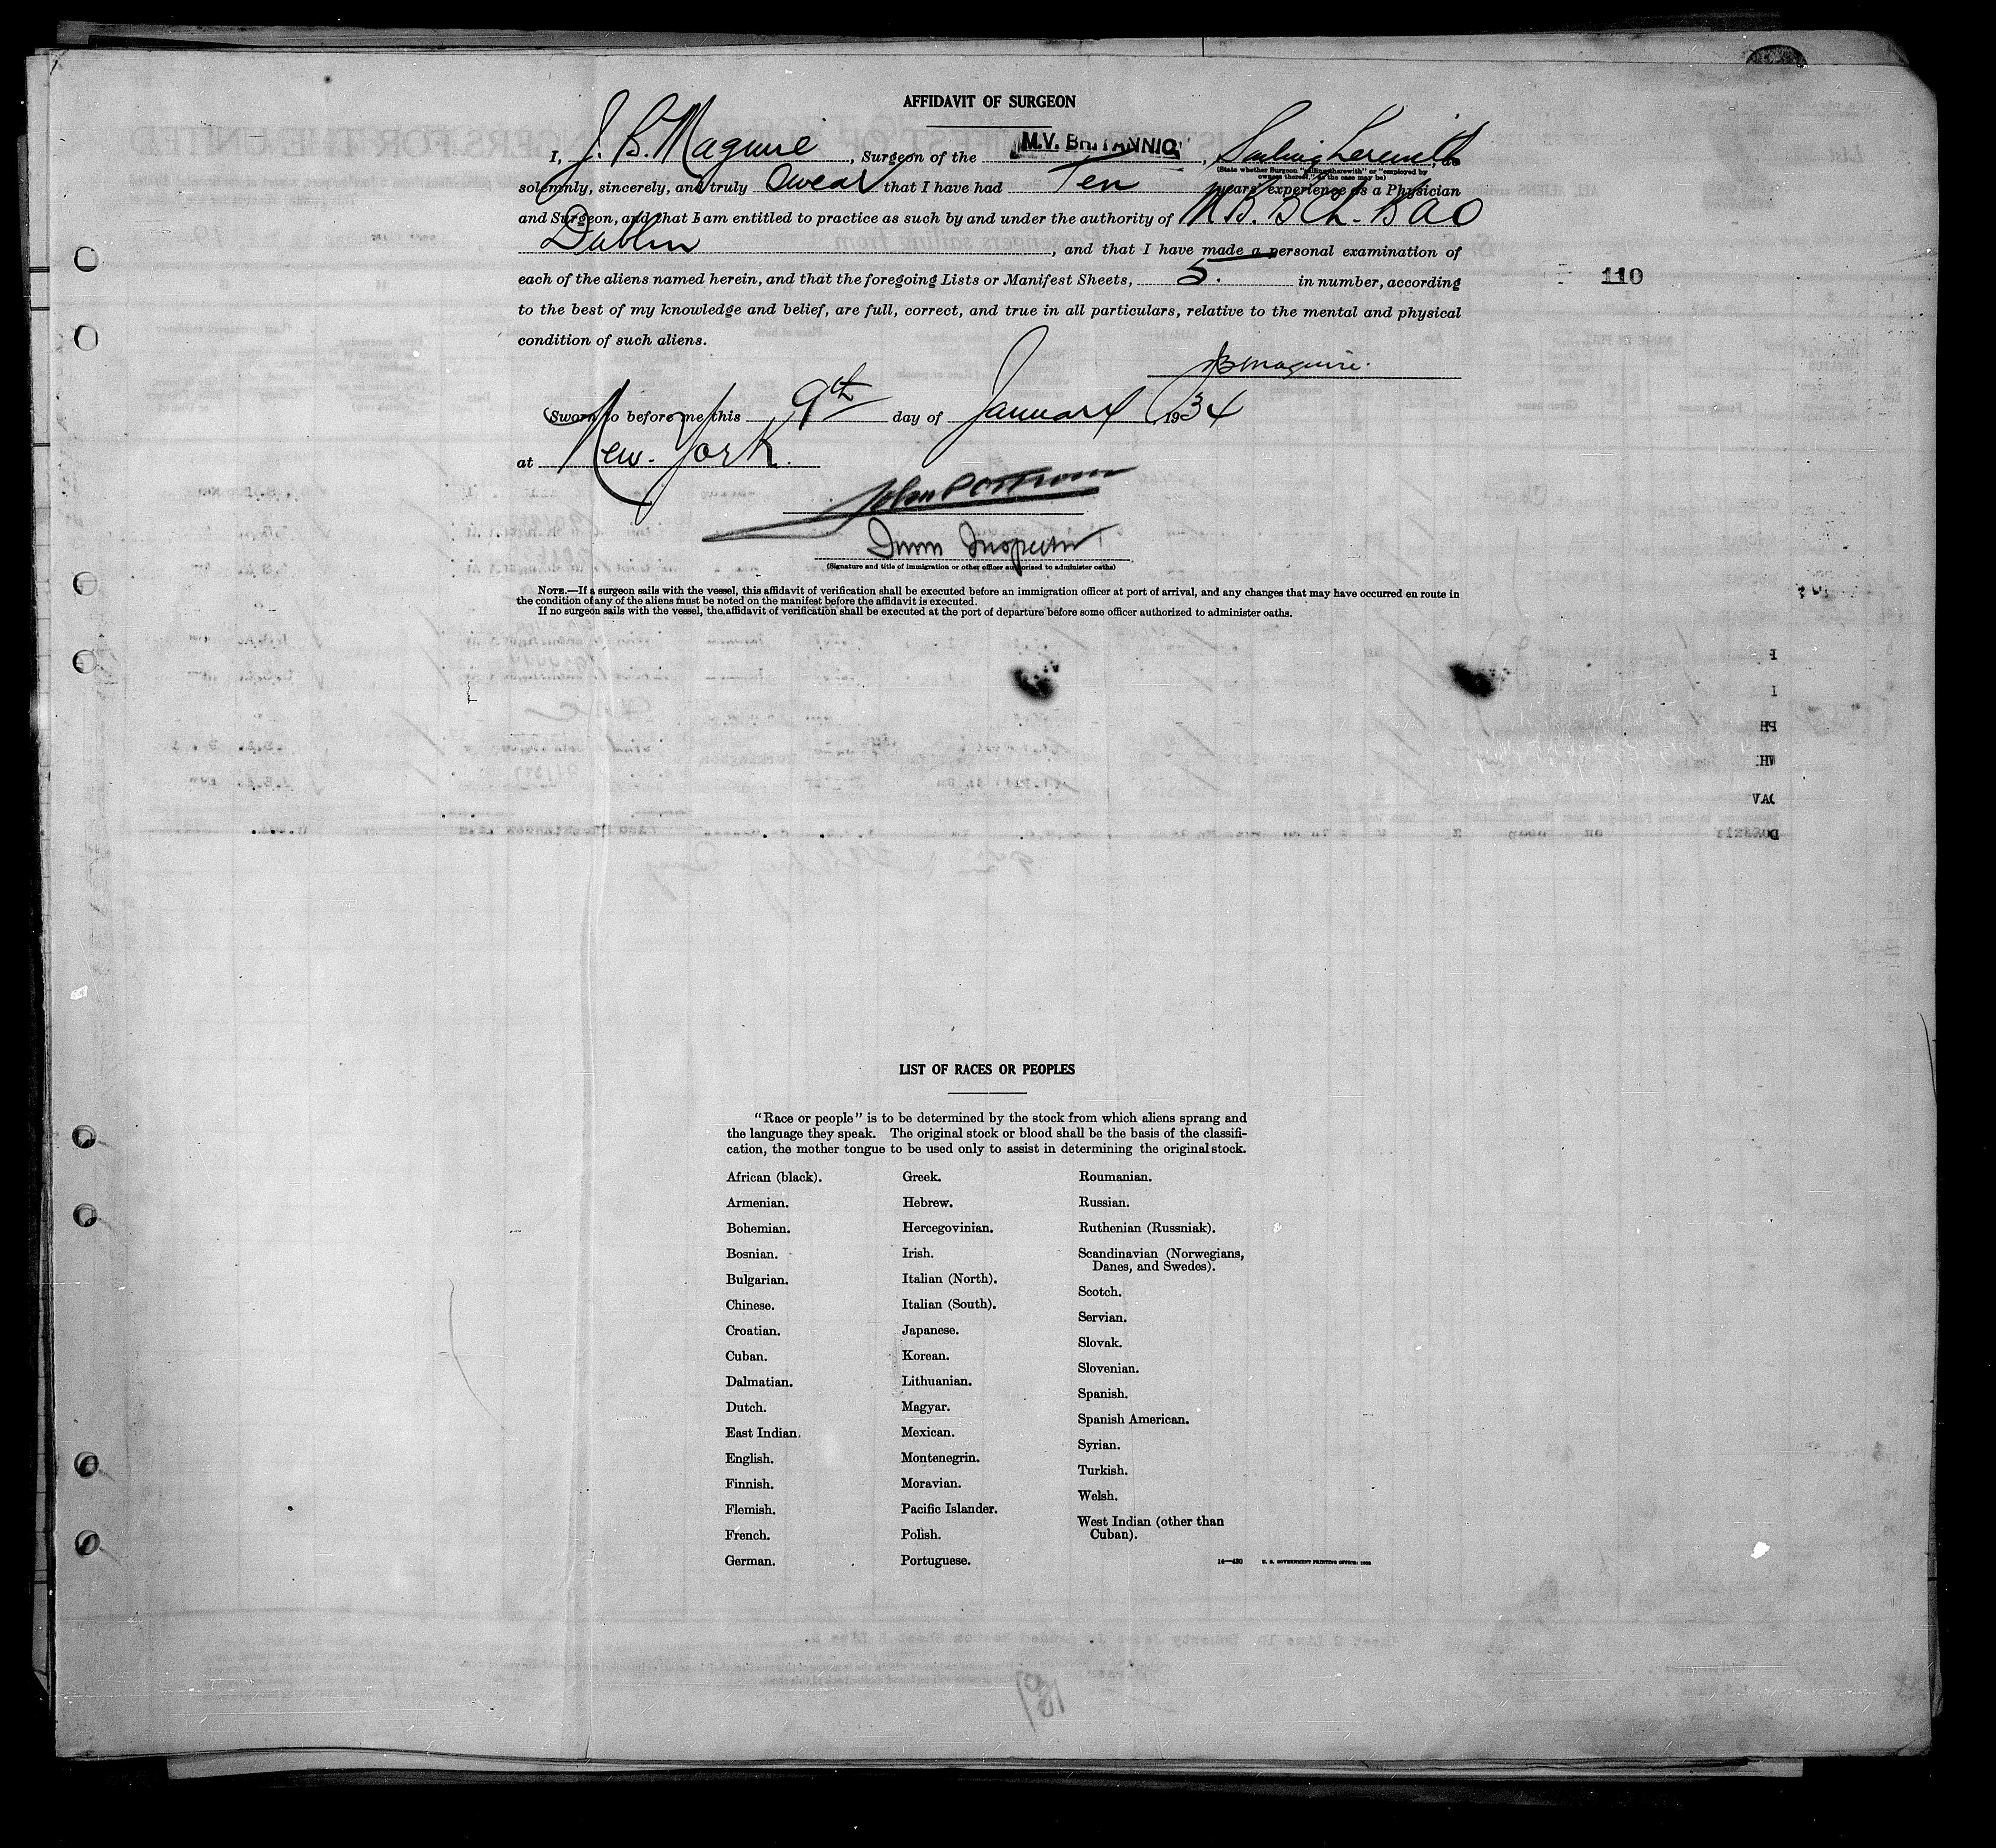 AFFIDAVIT OF SURGEON
I, J. B. Maguire, Surgeon of the M.V. BRITANNIC, Sailing therewith, do
(State whether Surgeon "sailing therewith" or "employed by owners thereof," as the case may be)
solemnly, sincerely, and truly Swear that I have had Ten years' experience as a Physician
and Surgeon, and that I am entitled to practice as such by and under the authority of M.B. B.Ch. B.A.O
Dublin, and that I have made a personal examination of
each of the aliens named herein, and that the foregoing Lists or Manifest Sheets, 5. in number, according
to the best of my knowledge and belief, are full, correct, and true in all particulars, relative to the mental and physical
condition of such aliens.
JB Maguire.
Sworn to before me this 9th day of January, 1934
at New-York.
John
Imm Inspector
(Signature and title of immigration or other officer authorized to administer oaths)
NOTE.—If a surgeon sails with the vessel, this affidavit of verification shall be executed before an immigration officer at port of arrival, and any changes that may have occurred en route in
the condition of any of the aliens must be noted on the manifest before the affidavit is executed.
If no surgeon sails with the vessel, the affidavit of verification shall be executed at the port of departure before some officer authorized to administer oaths.
110
LIST OF RACES OR PEOPLES
"Race or people" is to be determined by the stock from which aliens sprang and
the language they speak. The original stock or blood shall be the basis of the classifi-
cation, the mother tongue to be used only to assist in determining the original stock.
African (black).
Armenian.
Bohemian.
Bosnian.
Bulgarian.
Chinese.
Croatian.
Cuban.
Dalmatian.
Dutch.
East Indian.
English.
Finnish.
Flemish.
French.
German.
Greek.
Hebrew.
Hercegovinian.
Irish.
Italian (North).
Italian (South).
Japanese.
Korean.
Lithuanian.
Magyar.
Mexican.
Montenegrin.
Moravian.
Pacific Islander.
Polish.
Portuguese.
Roumanian.
Russian.
Ruthenian (Russniak).
Scandinavian (Norwegians,
Danes, and Swedes).
Scotch.
Servian.
Slovak.
Slovenian.
Spanish.
Spanish American.
Syrian.
Turkish.
Welsh.
West Indian (other than
Cuban).
14—430 U. S. GOVERNMENT PRINTING OFFICE: